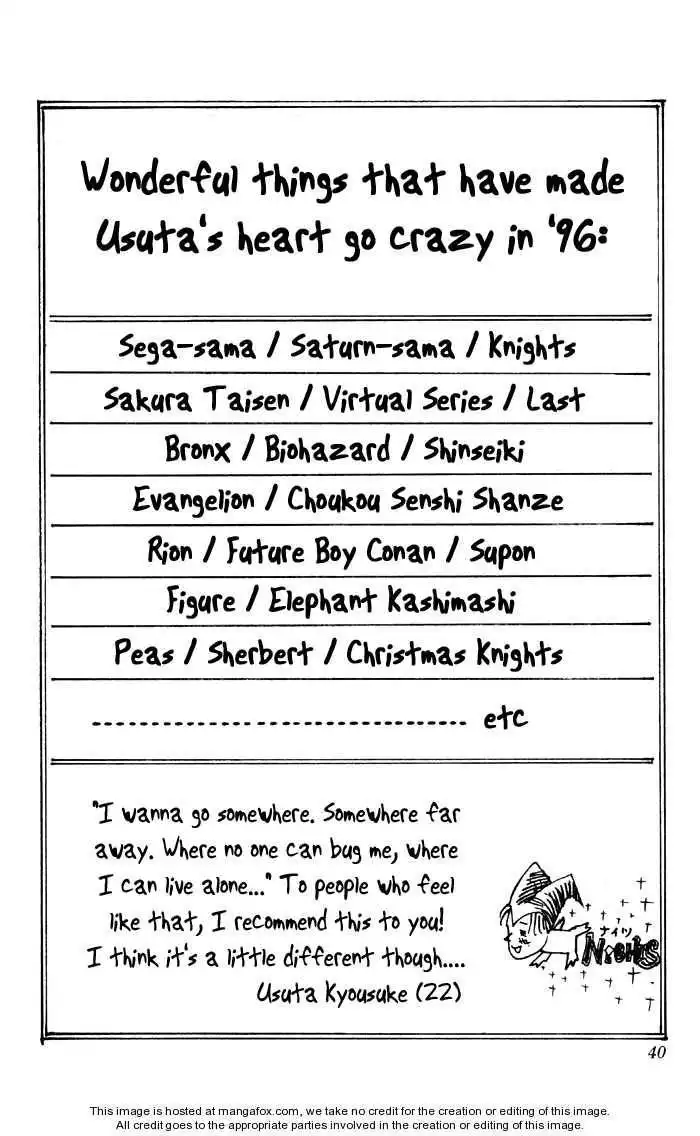 Wonderful things that have made
Usuta's heart go crazy in '96:
Sega-sama / Saturn-sama / Knights
Sakura Taisen / Virtual Series / Last
Bronx / Biohazard / Shinseiki
Evangelion / Choukou Senshi Shanze
Rion / Future Boy Conan / Supon
Figure / Elephant Kashimashi
Peas / Sherbert / Christmas Knights
---------------------------------- etc
"I wanna go somewhere. Somewhere far
away. Where no one can bug me, where
I can live alone..." To people who feel
like that, I recommend this to you!
I think it's a little different though....
Usuta Kyousuke (22)
ナイツ
NiGHTS
40
This image is hosted at mangafox.com, we take no credit for the creation or editing of this image.
All credit goes to the appropriate parties involved in the creation or editing of this image.